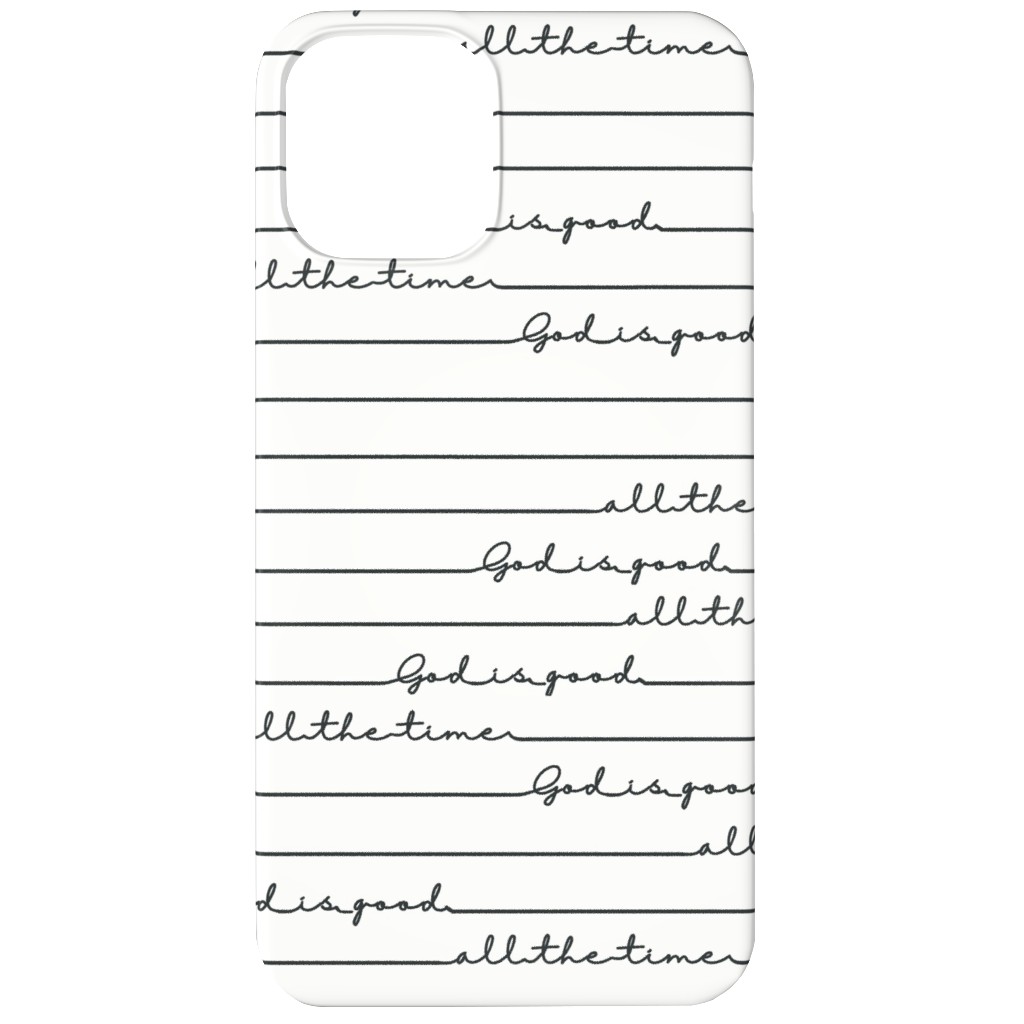 all the time
is good
ll the time
God is good
all the
God is good
all th
God is good
ll the time
God is goo
all
d is good
all the time